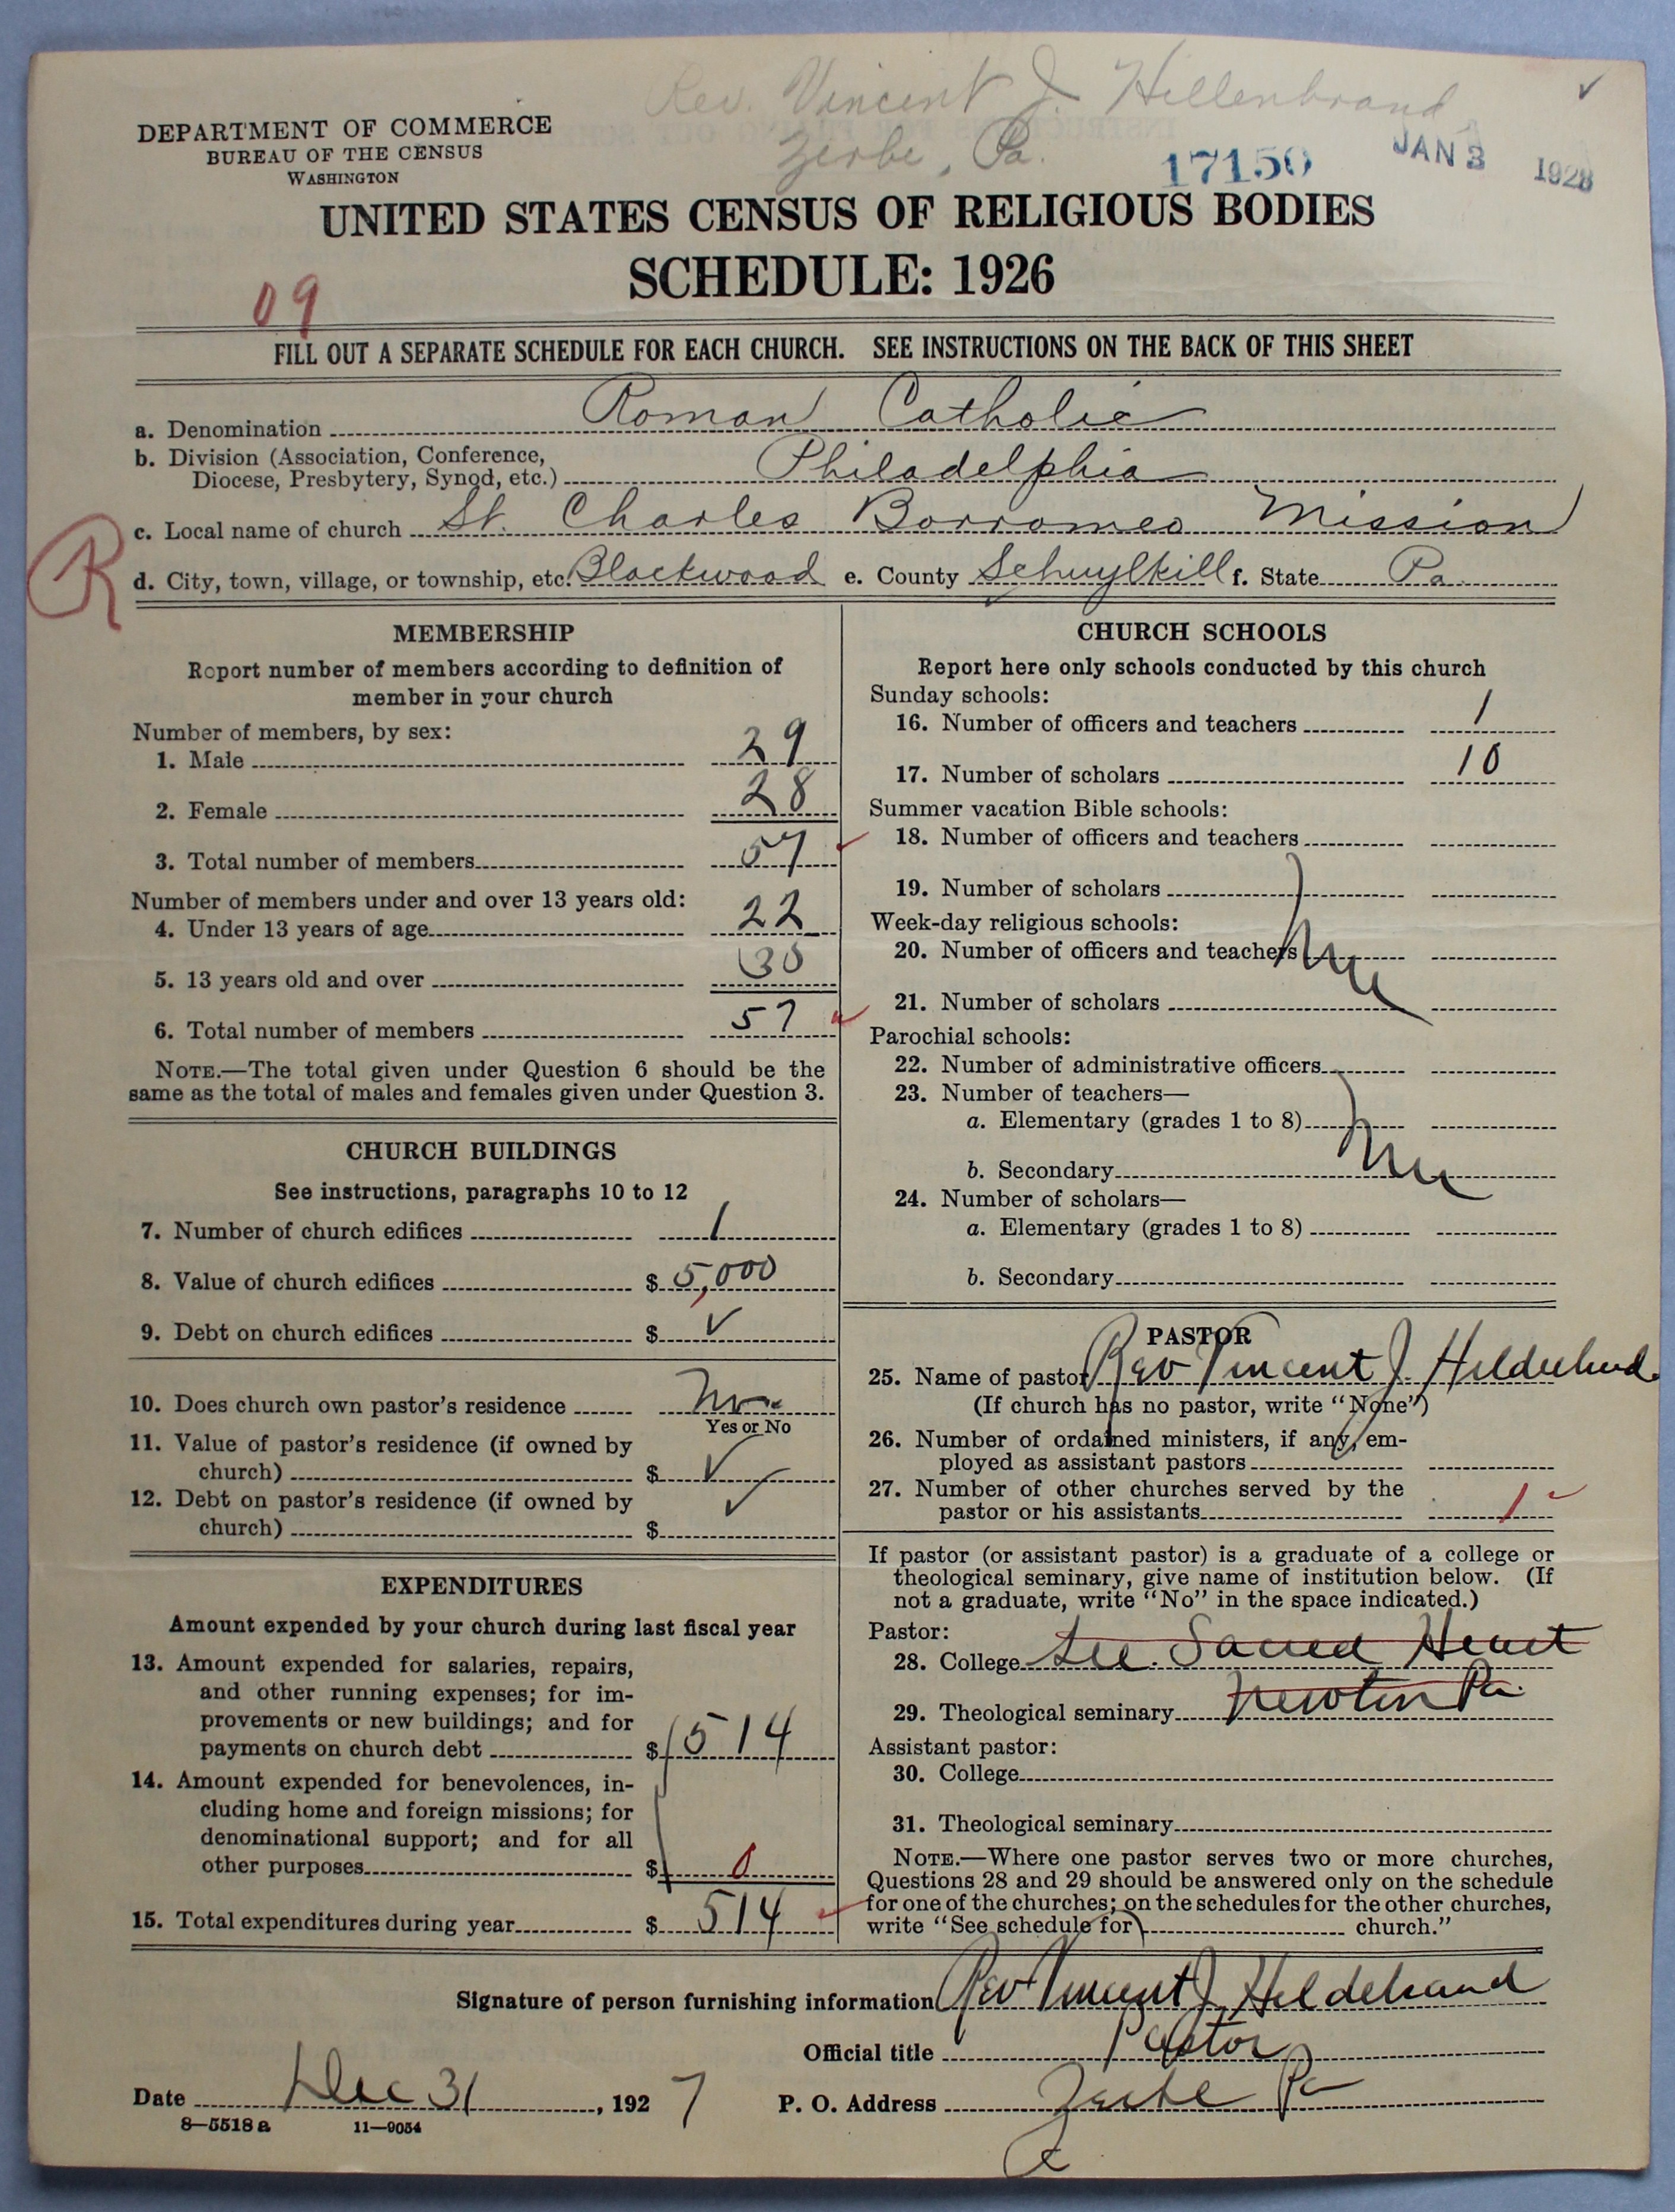 Rev. Vincent J. Hillenbrand
Zerbe, Pa.
DEPARTMENT OF COMMERCE
BUREAU OF THE CENSUS
WASHINGTON
17150
JAN 3 1928
UNITED STATES CENSUS OF RELIGIOUS BODIES
SCHEDULE: 1926
09
FILL OUT A SEPARATE SCHEDULE FOR EACH CHURCH. SEE INSTRUCTIONS ON THE BACK OF THIS SHEET
a. Denomination Roman Catholic
b. Division (Association, Conference,
Diocese, Presbytery, Synod, etc.) Philadelphia
c. Local name of church St. Charles Borromeo Mission
R
d. City, town, village, or township, etc. Blackwood e. County Schuylkill f. State Pa
MEMBERSHIP
Report number of members according to definition of
member in your church
Number of members, by sex:
1. Male 29
2. Female 28
3. Total number of members 57
Number of members under and over 13 years old:
4. Under 13 years of age 22
5. 13 years old and over
6. Total number of members 57
NOTE.—The total given under Question 6 should be the
same as the total of males and females given under Question 3.
CHURCH BUILDINGS
See instructions, paragraphs 10 to 12
7. Number of church edifices 1
8. Value of church edifices $ 5,000
9. Debt on church edifices $ ✓
10. Does church own pastor's residence
Yes or No
11. Value of pastor's residence (if owned by
church) $ ✓
12. Debt on pastor's residence (if owned by
church) $ ✓
EXPENDITURES
Amount expended by your church during last fiscal year
13. Amount expended for salaries, repairs,
and other running expenses; for im-
provements or new buildings; and for
payments on church debt $ 514
14. Amount expended for benevolences, in-
cluding home and foreign missions; for
denominational support; and for all
other purposes $ 0
15. Total expenditures during year $ 514
CHURCH SCHOOLS
Report here only schools conducted by this church
Sunday schools:
16. Number of officers and teachers 1
17. Number of scholars 10
Summer vacation Bible schools:
18. Number of officers and teachers
19. Number of scholars
Week-day religious schools:
20. Number of officers and teachers
21. Number of scholars
Parochial schools:
22. Number of administrative officers
23. Number of teachers—
a. Elementary (grades 1 to 8)
b. Secondary
24. Number of scholars—
a. Elementary (grades 1 to 8)
b. Secondary
PASTOR
25. Name of pastor Rev Vincent J.
(If church has no pastor, write "None")
26. Number of ordained ministers, if any, em-
ployed as assistant pastors
27. Number of other churches served by the
pastor or his assistants 1
If pastor (or assistant pastor) is a graduate of a college or
theological seminary, give name of institution below. (If
not a graduate, write "No" in the space indicated.)
Pastor:
28. College See. Sacred Heart
29. Theological seminary Newton Pa.
Assistant pastor:
30. College
31. Theological seminary
NOTE.—Where one pastor serves two or more churches,
Questions 28 and 29 should be answered only on the schedule
for one of the churches; on the schedules for the other churches,
write "See schedule for church."
Signature of person furnishing information Rev Vincent J. Hildebrand
Official title Pastor
Date Dec 31, 1927 P. O. Address Zerbe Pa
8—5518 a 11—9054